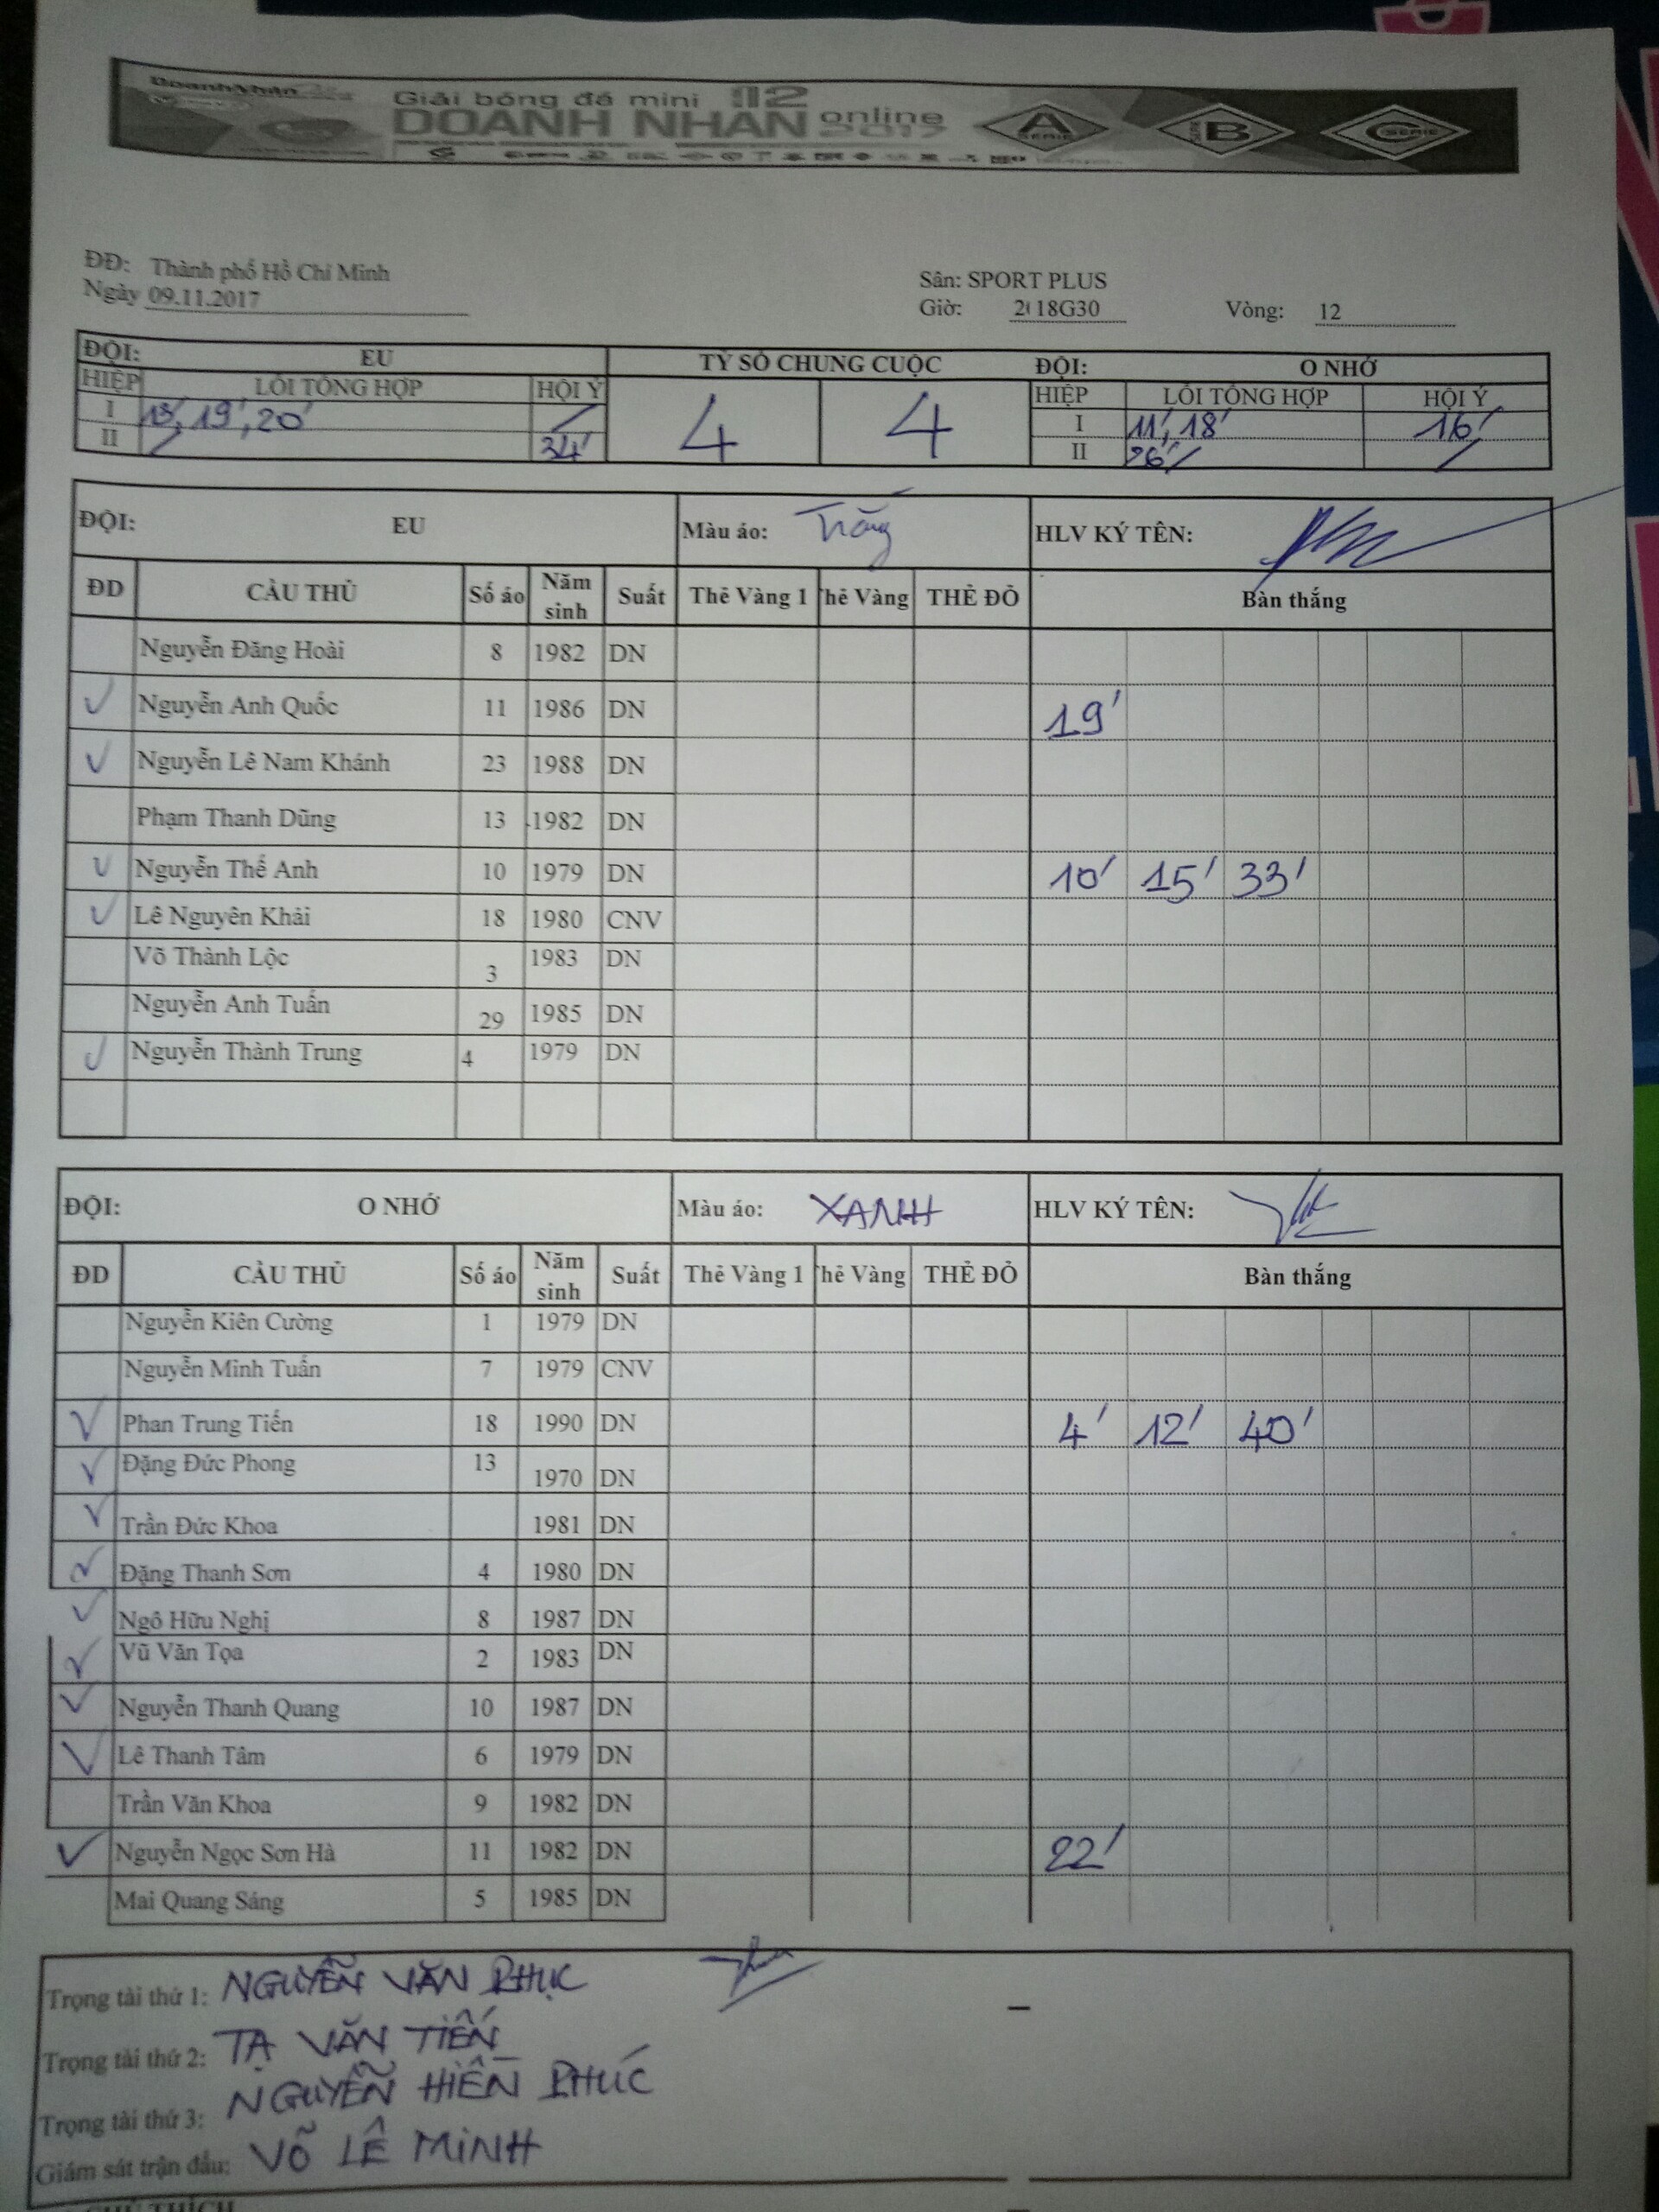 Giải bóng đá mini 12
DOANH NHÂN online 2017
A SERIE B C SERIE
ĐĐ: Thành phố Hồ Chí Minh
Sân: SPORT PLUS
Ngày 09.11.2017
Giờ: 18G30 Vòng: 12
ĐỘI: EU TỶ SỐ CHUNG CUỘC ĐỘI: O NHỚ
HIỆP LỖI TỔNG HỢP HỘI Ý 4 4 HIỆP LỖI TỔNG HỢP HỘI Ý
I 13', 19', 20' / I 11', 18' 16'
II / 34' II 26' / /
ĐỘI: EU Màu áo: Trắng HLV KÝ TÊN:
ĐD CẦU THỦ Số áo Năm sinh Suất Thẻ Vàng 1 hẻ Vàng THẺ ĐỎ Bàn thắng
Nguyễn Đăng Hoài 8 1982 DN
✓ Nguyễn Anh Quốc 11 1986 DN 19'
✓ Nguyễn Lê Nam Khánh 23 1988 DN
Phạm Thanh Dũng 13 1982 DN
✓ Nguyễn Thế Anh 10 1979 DN 10' 15' 33'
✓ Lê Nguyên Khải 18 1980 CNV
Võ Thành Lộc 3 1983 DN
Nguyễn Anh Tuấn 29 1985 DN
✓ Nguyễn Thành Trung 4 1979 DN
ĐỘI: O NHỚ Màu áo: XANH HLV KÝ TÊN:
ĐD CẦU THỦ Số áo Năm sinh Suất Thẻ Vàng 1 hẻ Vàng THẺ ĐỎ Bàn thắng
Nguyễn Kiên Cường 1 1979 DN
Nguyễn Minh Tuấn 7 1979 CNV
✓ Phan Trung Tiến 18 1990 DN 4' 12' 40'
✓ Đặng Đức Phong 13 1970 DN
✓ Trần Đức Khoa 1981 DN
✓ Đặng Thanh Sơn 4 1980 DN
✓ Ngô Hữu Nghị 8 1987 DN
✓ Vũ Văn Tọa 2 1983 DN
✓ Nguyễn Thanh Quang 10 1987 DN
✓ Lê Thanh Tâm 6 1979 DN
Trần Văn Khoa 9 1982 DN
✓ Nguyễn Ngọc Sơn Hà 11 1982 DN 22'
Mai Quang Sáng 5 1985 DN
Trọng tài thứ 1: NGUYỄN VĂN PHỤC
Trọng tài thứ 2: TẠ VĂN TIẾN
Trọng tài thứ 3: NGUYỄN HIỀN PHÚC
Giám sát trận đấu: VÕ LÊ MINH